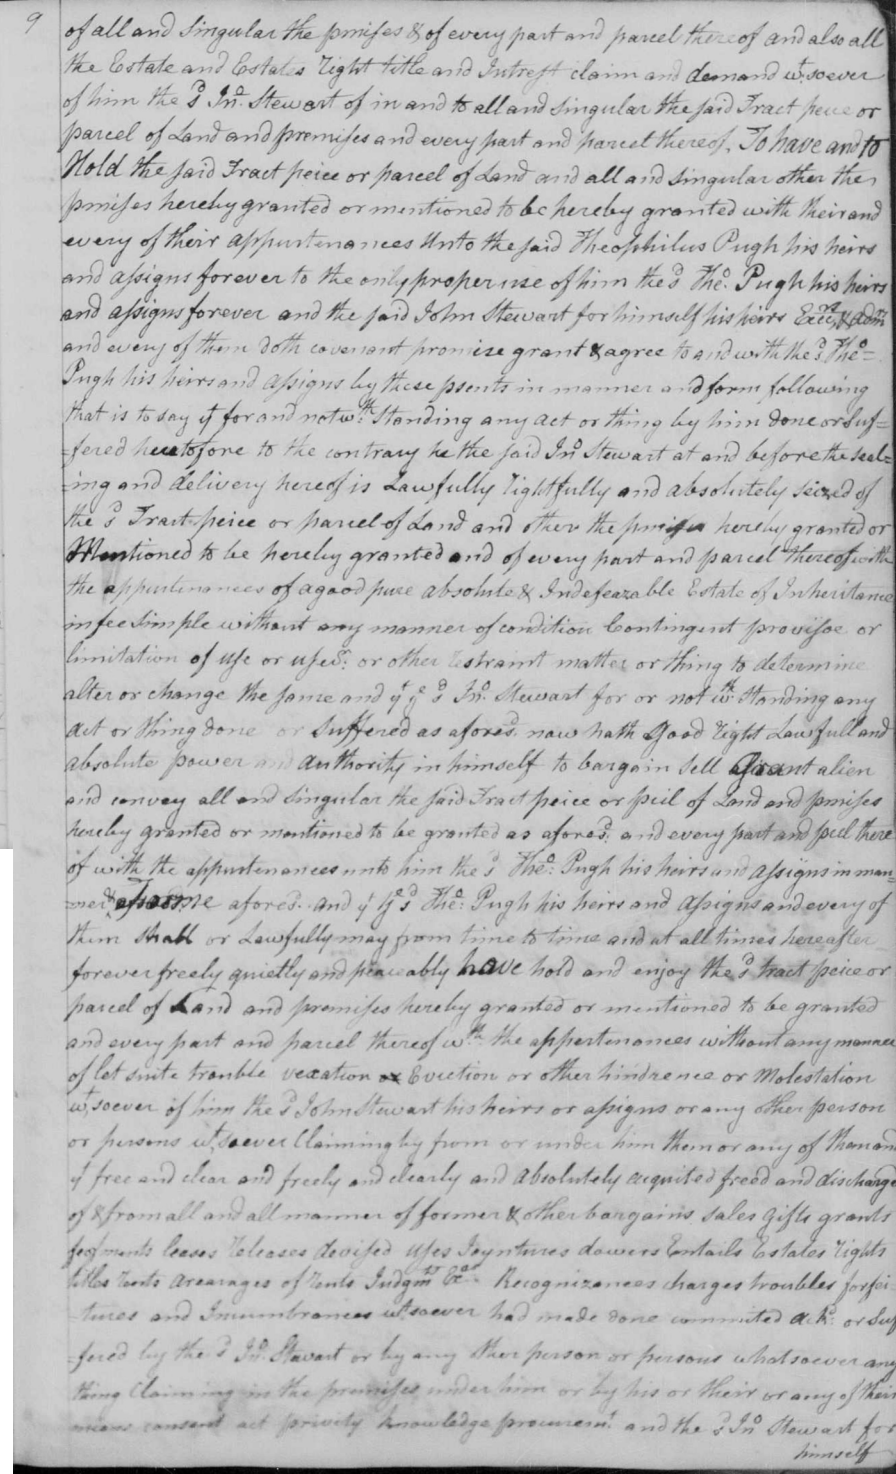 9
of all and singular the pmises & of every part and parcel thereof and also all
the Estate and Estates right title and Intrest claim and demand wt. soever
of him the sd Jno. Stewart of in and to all and singular the said Tract peice or
parcel of Land and premises and every part and parcel thereof. To have and to
Hold the said Tract peice or parcel of Land and all and singular other the
pmises hereby granted or mentioned to be hereby granted with their and
every of their appurtenances Unto the said Theophilus Pugh his heirs
and assigns forever to the only proper use of him the sd Theo. Pugh his heirs
and assigns forever and the said John Stewart for himself his heirs Exrs. & Admrs
and every of them doth covenant promise grant & agree to and with the sd Theo=
Pugh his heirs and assigns by these psents in manner and form following
that is to say yt for and notwth. Standing any act or thing by him done or Suf=
=fered heretofore to the contrary he the said Jno Stewart at and before the seal=
=ing and delivery hereof is Lawfully rightfully and absolutely seized of
the sd Tract peice or parcel of Land and other the pmises hereby granted or
Mentioned to be hereby granted and of every part and parcel thereof with
the appurtenances of a good pure absolute & Indefeazable Estate of Inheritance
in fee simple without any manner of condition Contingent provisoe or
limitation of use or uses: or other restraint matter or thing to determine
alter or change the same and yt ye sd Jno. Stewart for or not wth. Standing any
act or thing done or Suffered as aforesd. now hath Good right Lawfull and
absolute power and authority in himself to bargain Sell Grant alien
and convey all and singular the said Tract peice or pcil of Land and pmises
hereby granted or mentioned to be granted as aforesd. and every part and pcel there
of with the appurtenances unto him the sd Theo. Pugh his heirs and assigns in man=
=ner & forme aforesd. and yt ye sd Theo. Pugh his heirs and Assigns and every of
them shall or Lawfully may from time to time and at all times hereafter
forever freely quietly and peaceably have hold and enjoy the sd tract peice or
parcel of Land and premises hereby granted or mentioned to be granted
and every part and parcel thereof wth. the appertenances without any manner
of let suite trouble vexation or Eviction or other hindrence or Molestation
wt, soever of him the sd John Stewart his heirs or assigns or any other person
or persons wt, soever Claiming by from or under him them or any of them and
yt free and clear and freely and clearly and absolutely acquited freed and discharge
of & from all and all manner of former & other bargains sales gifts grants
feofments leases releases devised uses Joyntures dowers Entails Estates rights
titles rents arearages of rents Judgmts &c. Recognizances charges troubles forfei
=tures and Incumbrances wt.soever had made done commited or Suf
=fered by the sd Jno. Stewart or by any other person or persons whatsoever any
thing Claiming in the premises under him or by his or their or any of their
means consent act privity knowledge procuremt. and the sd Jno Stewart for
himself